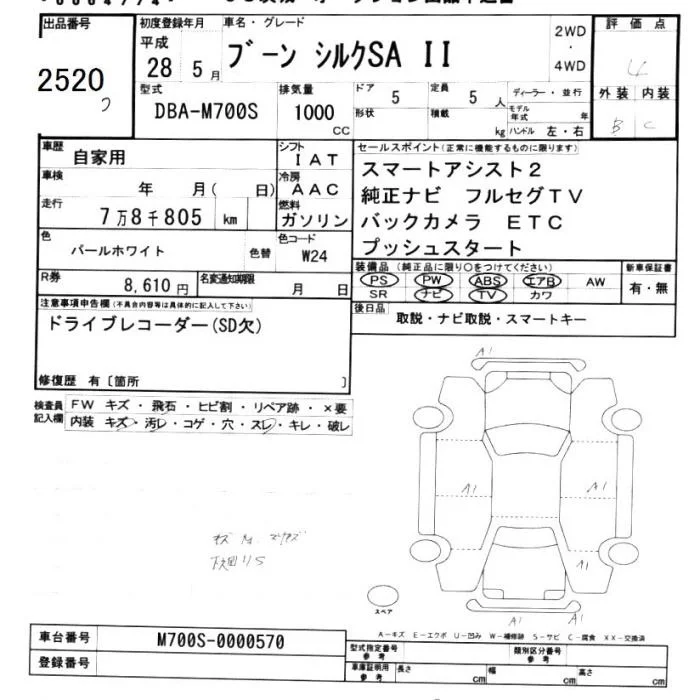 出品番号 初度登録年月 車名・グレード 2WD・4WD 評価点
2520 平成28年5月 ブーン シルクSA II 4
型式 排気量 ドア 定員 ディーラー・並行 外装 内装
DBA-M700S 1000CC 5 5人 モデル年式 年 B C
形状 積載 kg ハンドル 左・右
車歴 自家用 シフト IAT セールスポイント(正常に機能するものに限ります)
車検 年 月(日) 冷房 AAC スマートアシスト2
走行 7万8千805 km 燃料 ガソリン 純正ナビ フルセグTV
バックカメラ ETC
色 パールホワイト 色替 色コード W24 プッシュスタート
R券 8,610円 名変通知期限 月 日 装備品(純正品に限り○をつけてください) 新車保証書
PS PW ABS エアB AW 有・無
SR ナビ TV カワ
注意事項申告欄(不具合内容等は具体的に記入して下さい) 後日品 取説・ナビ取説・スマートキー
ドライブレコーダー(SD欠)
修復歴 有〔箇所 〕
検査員記入欄 FW キズ・飛石・ヒビ割・リペア跡・×要
内装 キズ・汚レ・コゲ・穴・スレ・キレ・破レ
A1
A1 A1
A1
A1 A1
スペア
A-キズ E-エクボ U-凹み W-補修跡 S-サビ C-腐食 XX-交換済
車台番号 M700S-0000570 型式指定番号 参考 類別区分番号 参考
登録番号 車庫証明用 参考 長さ cm 幅 cm 高さ cm